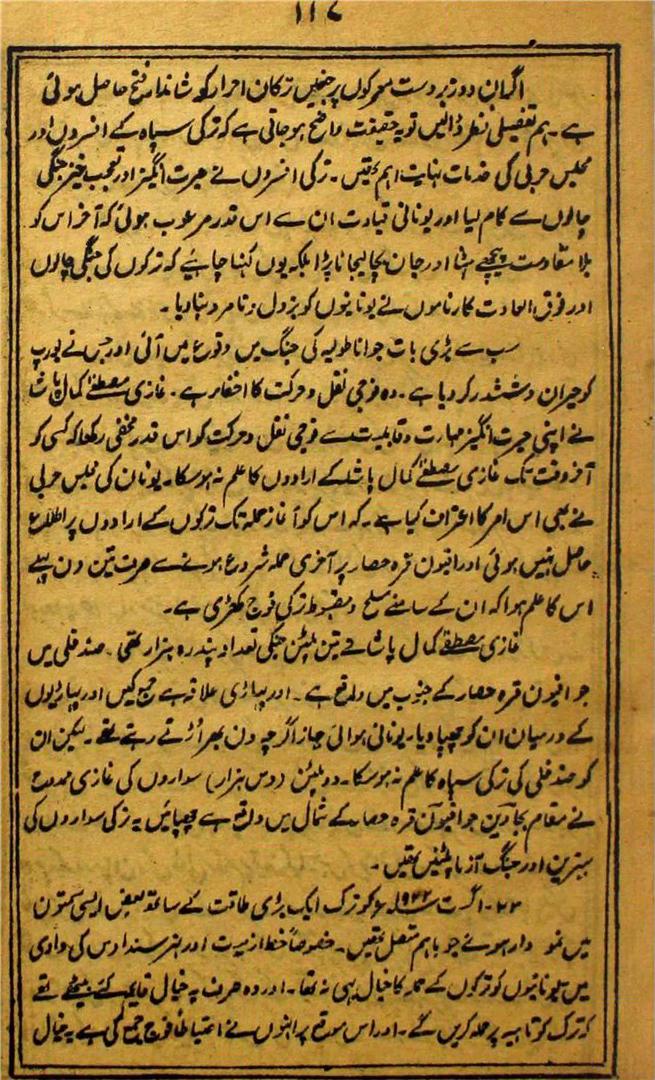 ۱۱۷
اگر ان دو زبردست معرکوں پر جنہیں ترکان احرار کو شاندار فتح حاصل ہوئی
ہے۔ ہم تفصیلی نظر ڈالیں تو یہ حقیقت واضح ہوجاتی ہے کہ ترکی سپاہ کے افسروں اور
مجلس حربی کی خدمات نہایت اہم تھیں۔ ترکی افسروں نے حیرت انگیز اور تعجب خیز جنگی
چالوں سے کام لیا اور یونانی قیادت ان سے اس قدر مرعوب ہوئی کہ آخر اس کو
بلا مقاومت پیچھے ہٹنا اور جان بچا لیجانا پڑا بلکہ یوں کہنا چاہئے کہ ترکوں کی جنگی چالوں
اور فوق العادت کارناموں نے یونانیوں کو بزدل و نامرد بنا دیا۔
سب سے بڑی بات جو اناطولیہ کی جنگ میں وقوع میں آئی اور جس نے یورپ
کو حیران و ششدر کردیا ہے۔ وہ فوجی نقل و حرکت کا اخفار ہے۔ غازی مصطفےٰ کمال پاشا
نے اپنی حیرت انگیز مہارت و قابلیت سے فوجی نقل و حرکت کو اس قدر مخفی رکھا کہ کسی کو
آخر وقت تک غازی مصطفےٰ کمال پاشا کے ارادوں کا علم نہ ہوسکا۔ یونان کی مجلس حربی
نے بھی اس امر کا اعتراف کیا ہے۔ کہ اس کو آغاز حملہ تک ترکوں کے ارادوں پر اطلاع
حاصل نہیں ہوئی اور افیون قرہ حصار پر آخری حملہ شروع ہونے سے صرف تین دن پہلے
اس کا علم ہوا کہ ان کے سامنے مسلح و مضبوط ترکی فوج کھڑی ہے۔
غازی مصطفےٰ کمال پاشا نے تین پلٹن جنکی تعداد پندرہ ہزار تھی۔ صندقلی میں
جو افیون قرہ حصار کے جنوب میں واقع ہے۔ اور پہاڑی علاقہ ہے جمع کیں اور پہاڑیوں
کے درمیان ان کو چھپا دیا۔ یونانی ہوائی جہاز اگرچہ دن بھر اڑتے رہتے تھے۔ لیکن ان
کو صندقلی کی ترکی سپاہ کا علم نہ ہوسکا۔ دو پلٹن (دس ہزار) سواروں کی غازی ممدوح
نے مقام میں جو افیون قرہ حصار کے شمال میں واقع ہے چھپائیں یہ ترکی سواروں کی
بہترین اور جنگ آزما پلٹنیں تھیں۔
اگست ۱۹۲۲ء کو ترک ایک بڑی طاقت کے ساتھ بعض ایسی سمتوں
میں نمودار ہوئے جو باہم متصل تھیں۔ خصوصاً خط ازمیت اور نہر سندارس کی وادی
میں یونانیوں کو ترکوں کے حملہ کا خیال ہی نہ تھا۔ اور وہ صرف یہ خیال قایم کئے بیٹھے تھے
کہ ترک کوتاہیہ پر حملہ کریں گے۔ اور اس موقع پر انہوں نے احتیاطاً فوج جمع کی ہے یہ خیال